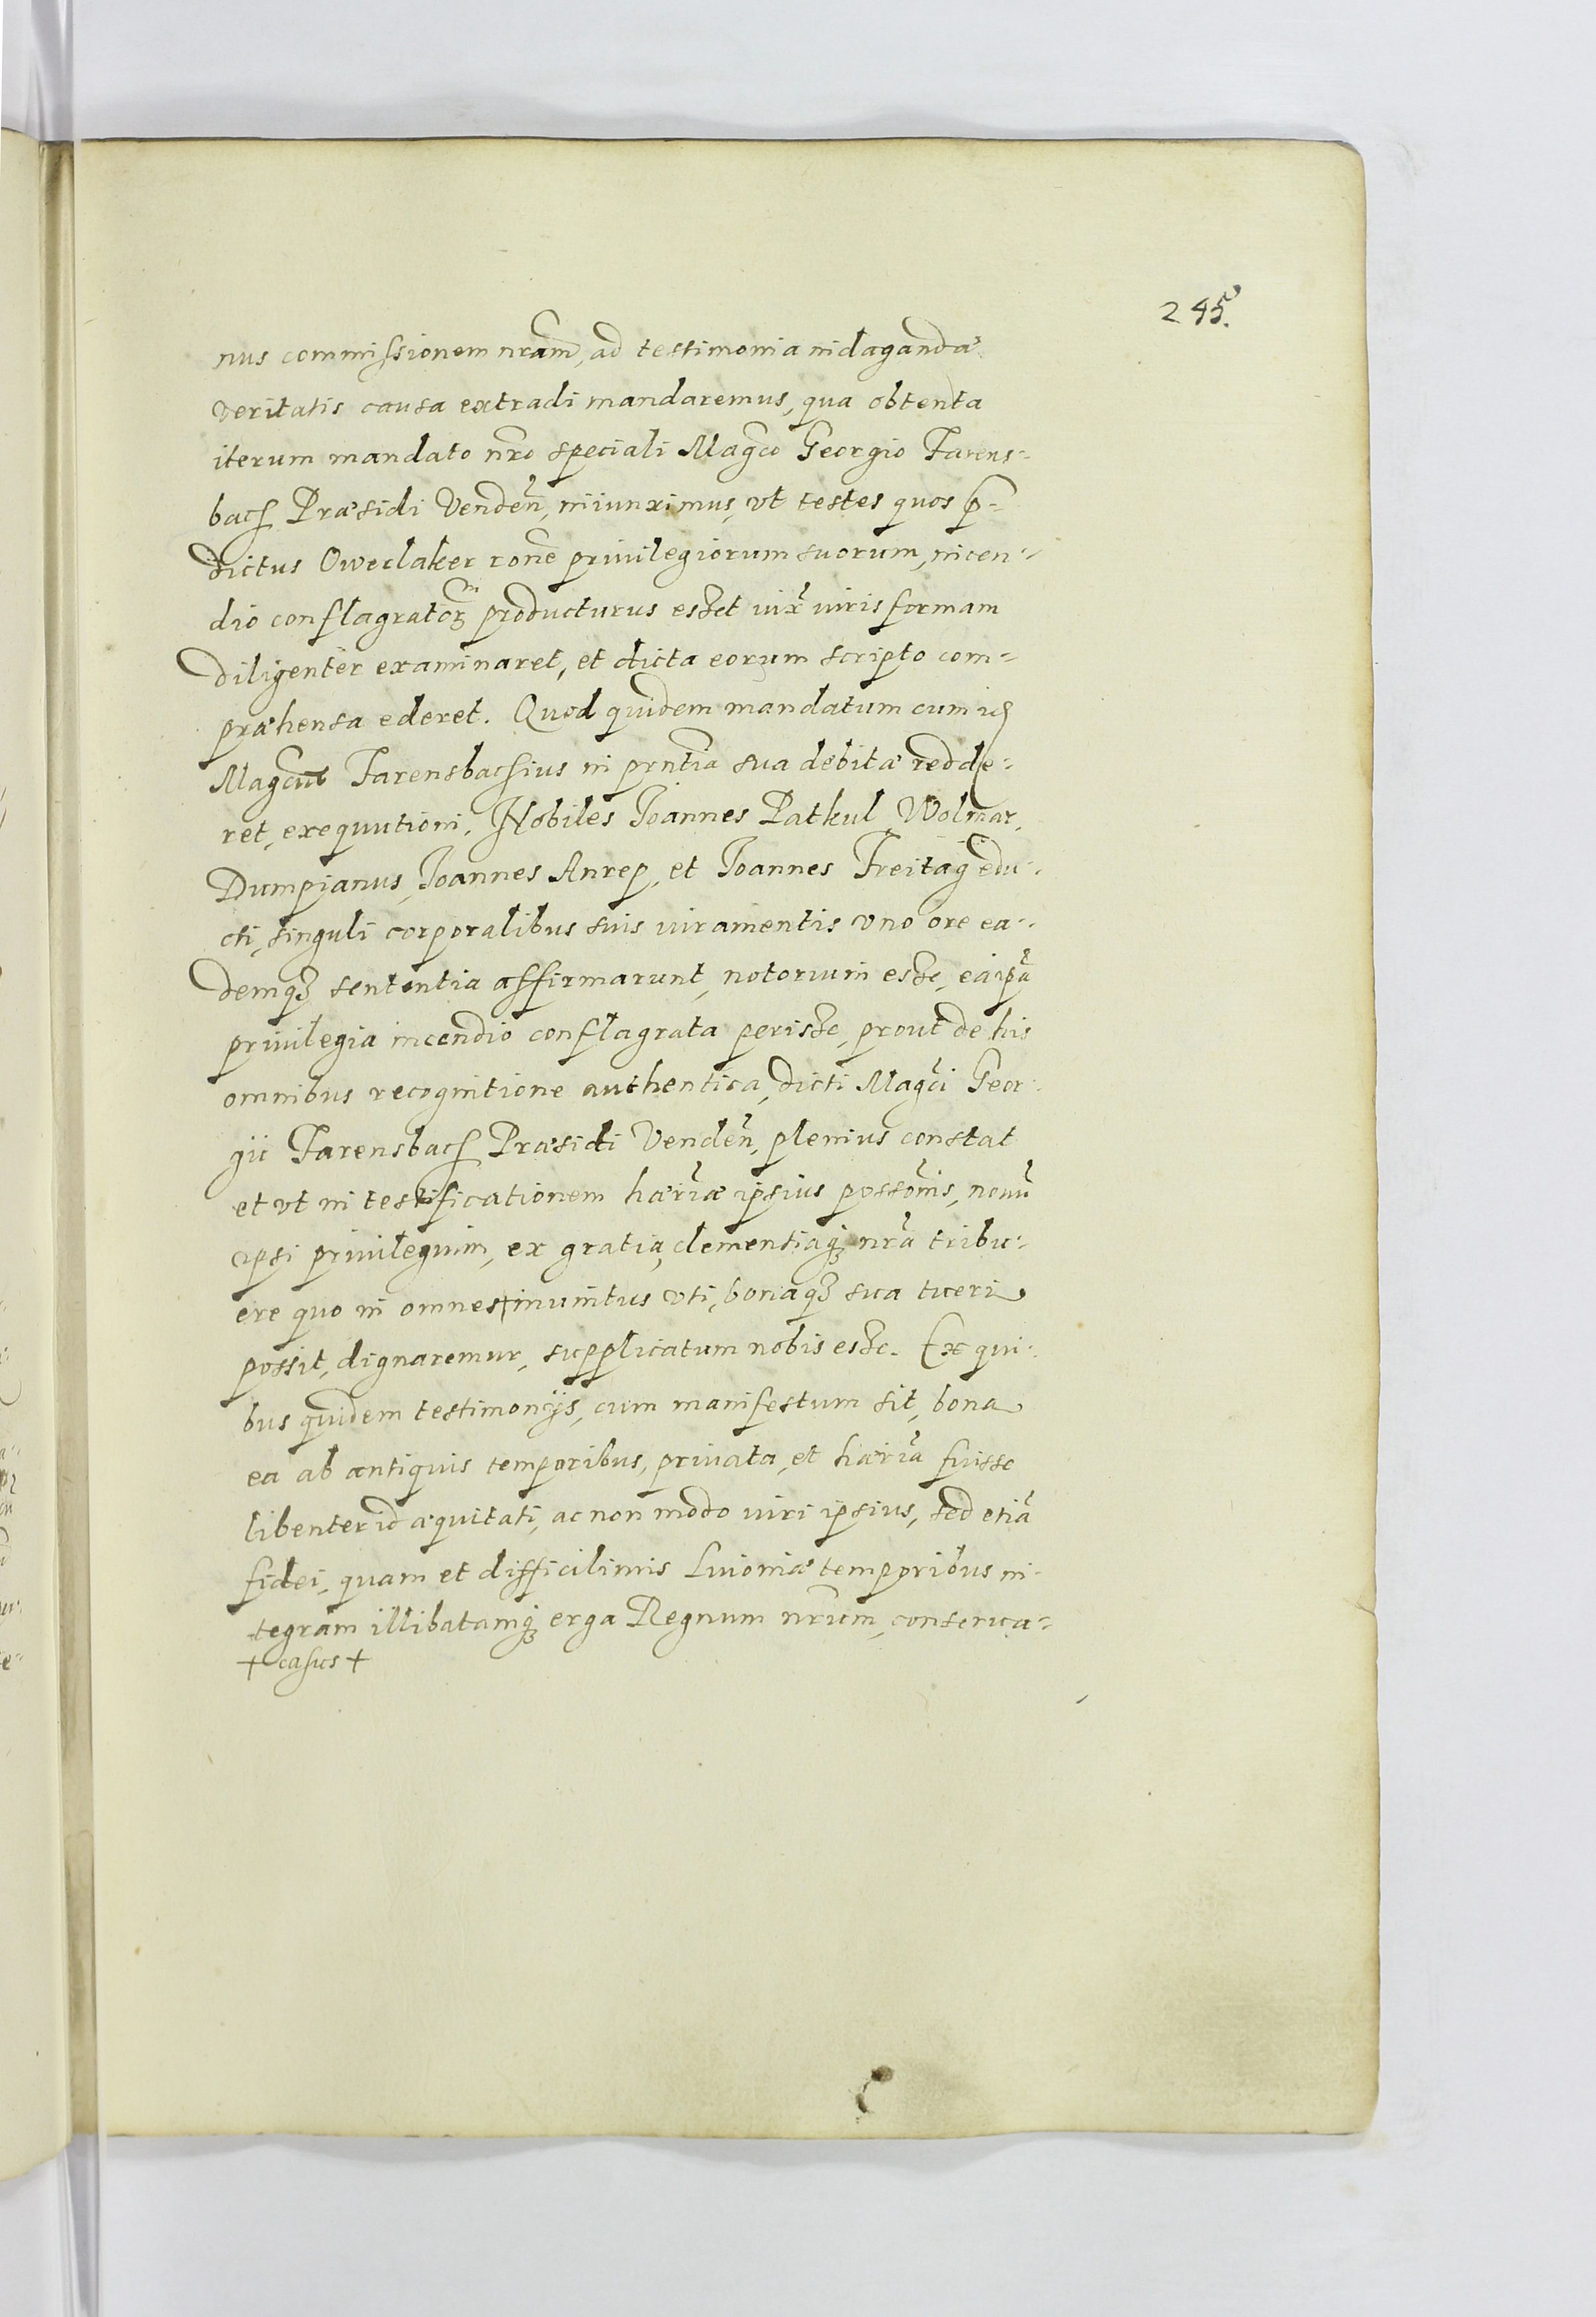 245.
nus commissionem nrãm, ad testimonia indagandæ
veritatis causa extradi mandaremus, qua obtenta
iterum mandato nrõ speciali Magco Georgio Farens=
bach Præsidi Venden, iniunximus, vt testes quos p=
dictus Owerlaker rone priuilegiorum suorum, incen=
dio conflagratorm producturus esset iux iuris formam
diligenter examinaret, et dicta eorum scripto com=
præhensa ederet. Quod quidem mandatum cum id
Magcus Farensbachius in prntia sua debitæ redde=
ret, exequutioni, Nobiles Joannes Patkul Wolmar,
Dumpianus, Joannes Anrep, et Joannes Freitag edu=
cti, singuli corporalibus suis iuramentis vno ore ea=
demq3 sententia affirmarunt, notorium esse, ea ipsa
priuilegia incendio conflagrata perisse, prout de his
omnibus recognitione authentica, dicti Magci Geor=
gii Farensbach Præsidi Venden, plenius constat
et vt in testificationem hæriæ ipsius possonis, nouũ
ipsi priuilegium, ex gratia, clementiaq3 nrã tribu=
ere quo in omnes + inuintus vti, bonaq3 sua tueri
possit, dignaremur, supplicatum nobis esse. Ex qui=
bus quidem testimonijs, cum manifestum sit, bona
ea ab antiquis temporibus, priuata, et hæria fuisse
libenter id æquitati, ac non modo iuri ipsius, sed etiã
fidei, quam et difficilimis Liuoniæ temporibus in=
tegram illibatamq3 erga Regnum nrũm, conserua=
+ casus +